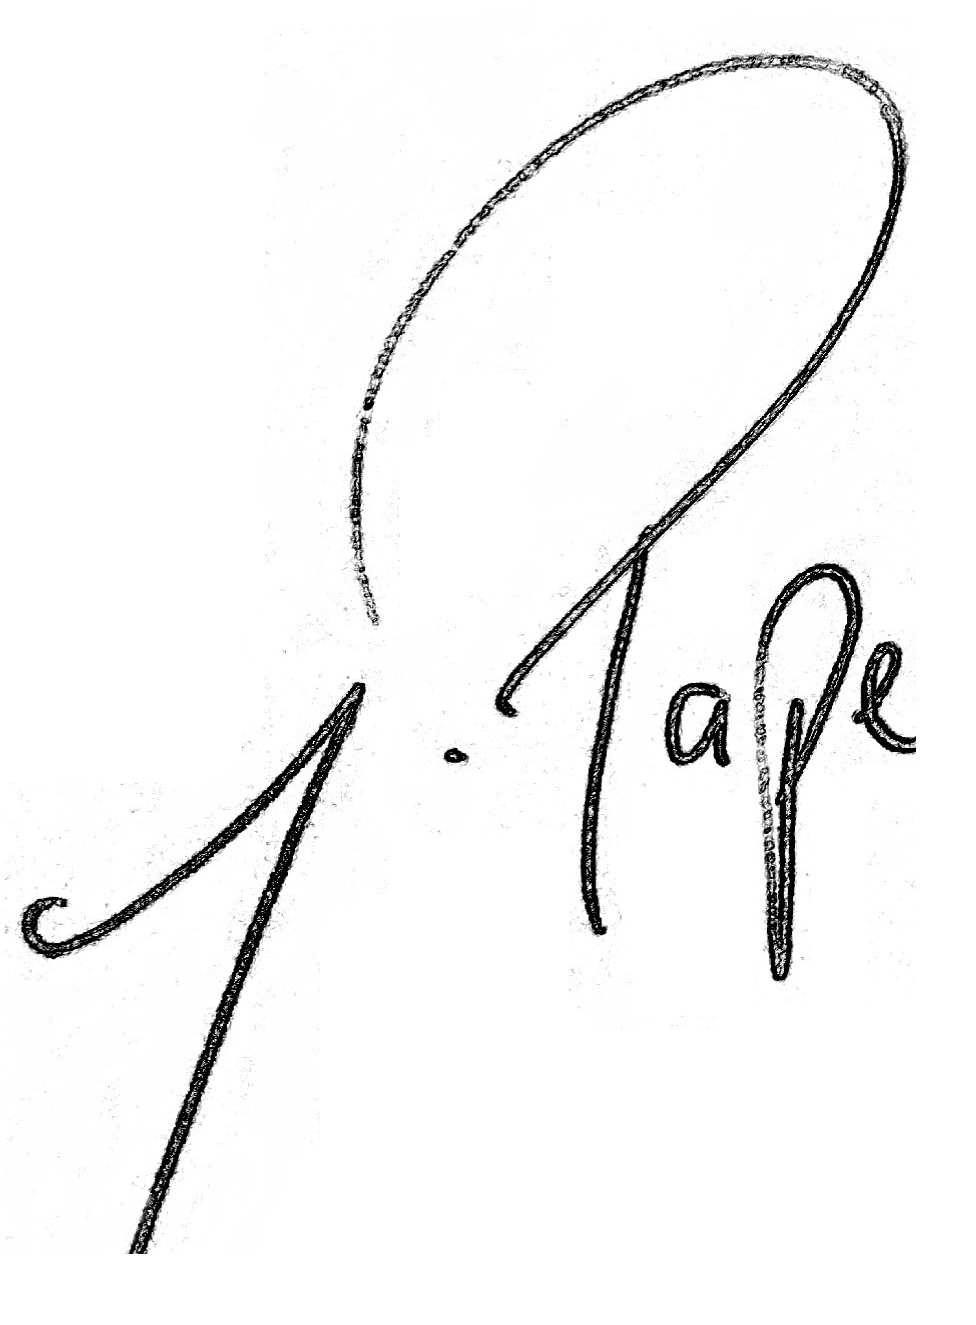 J. Pape